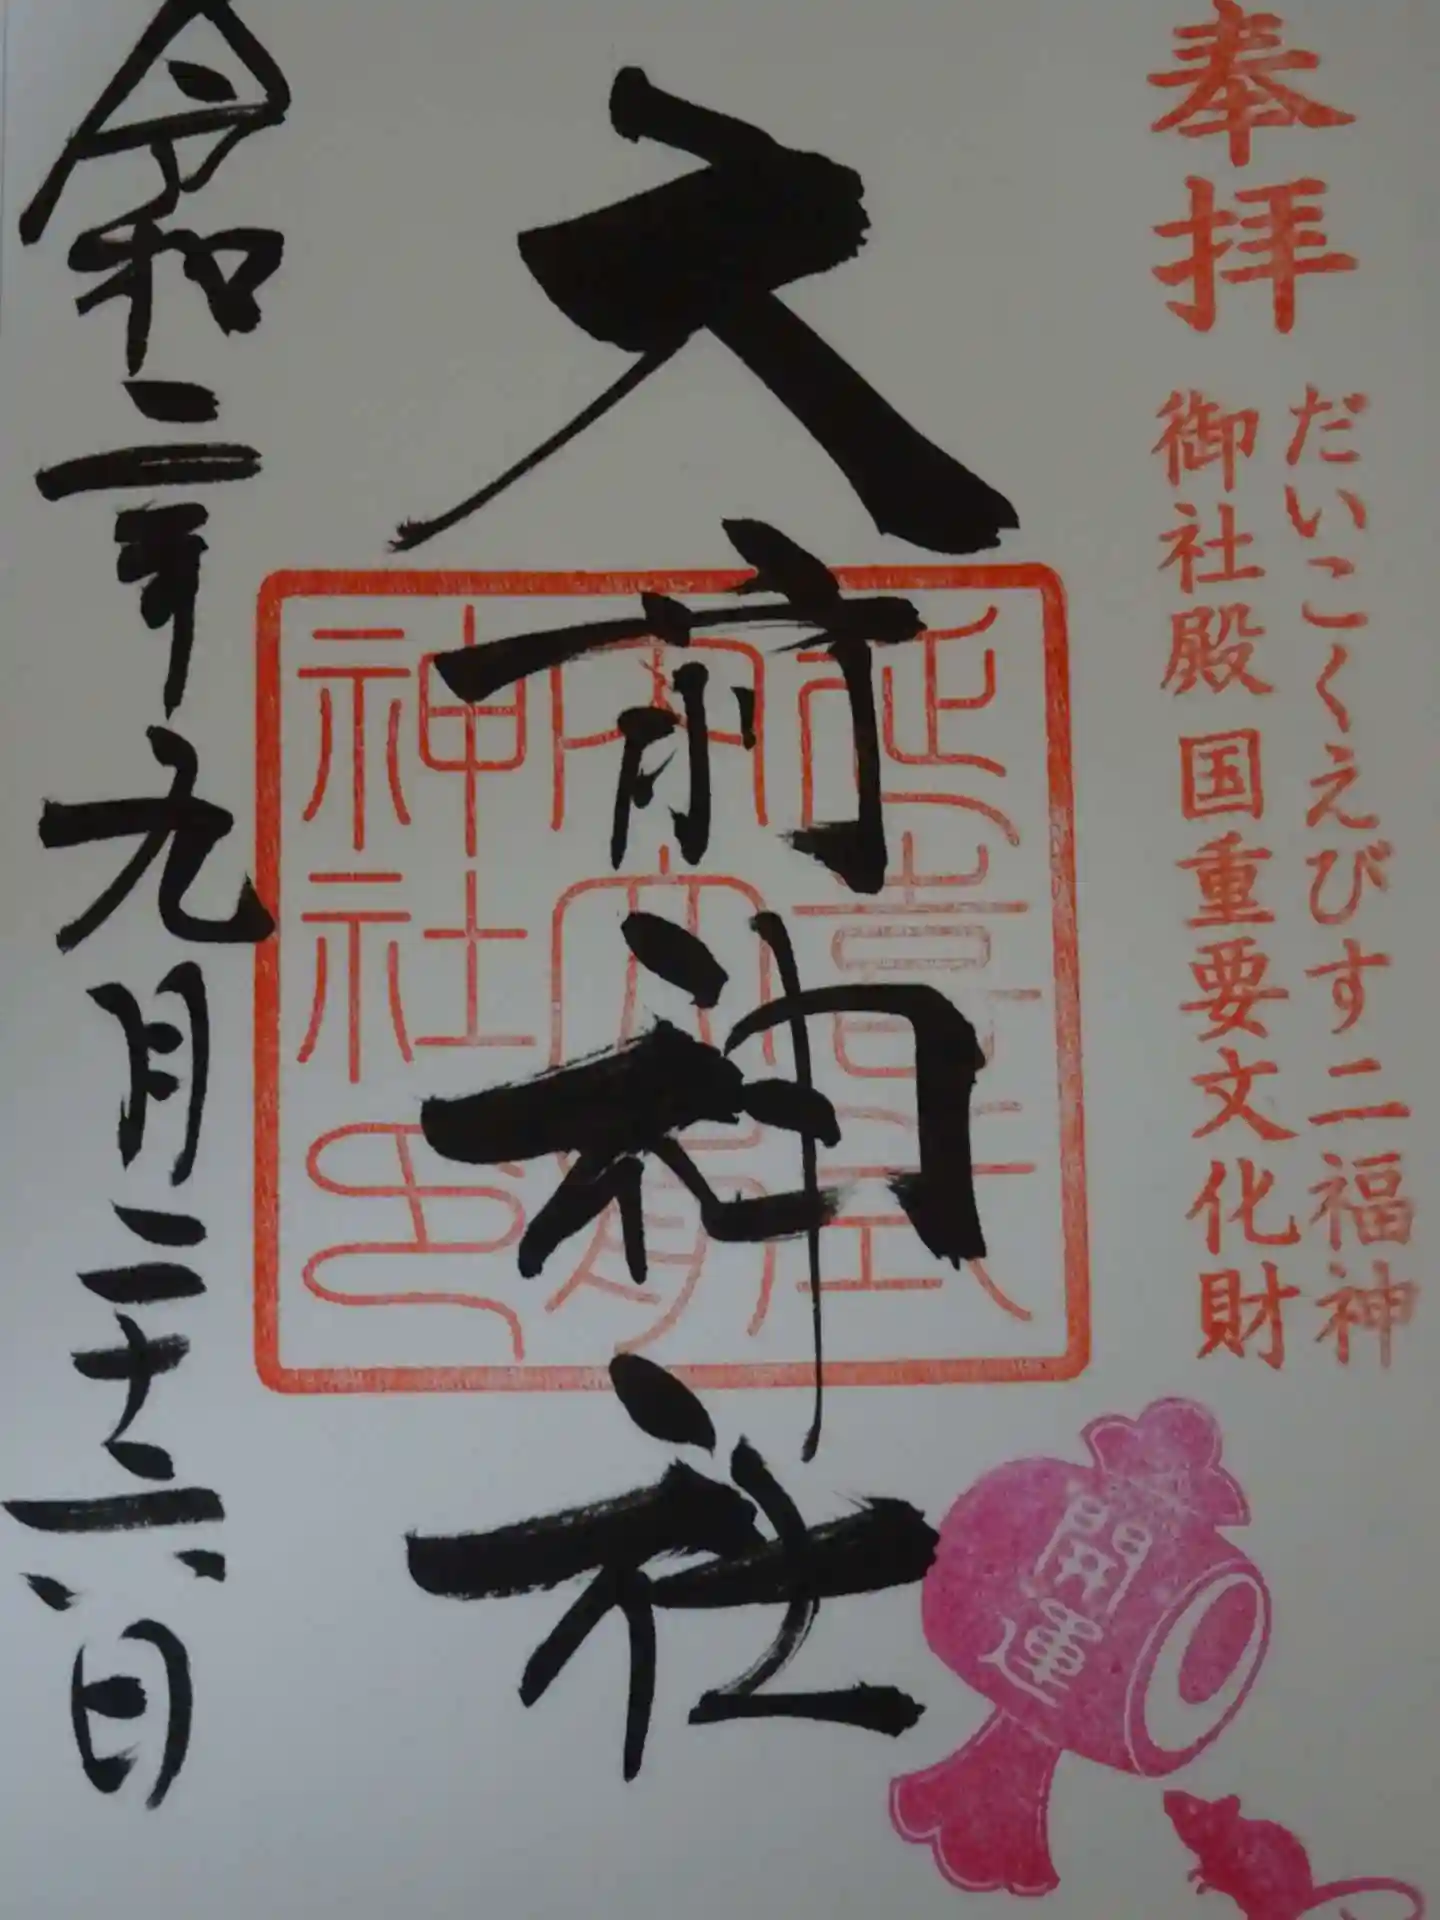 奉拝
だいこくえびす二福神
御社殿 国重要文化財
大前神社
延喜式
内大前
神社印
令和二年九月二十六日
開運